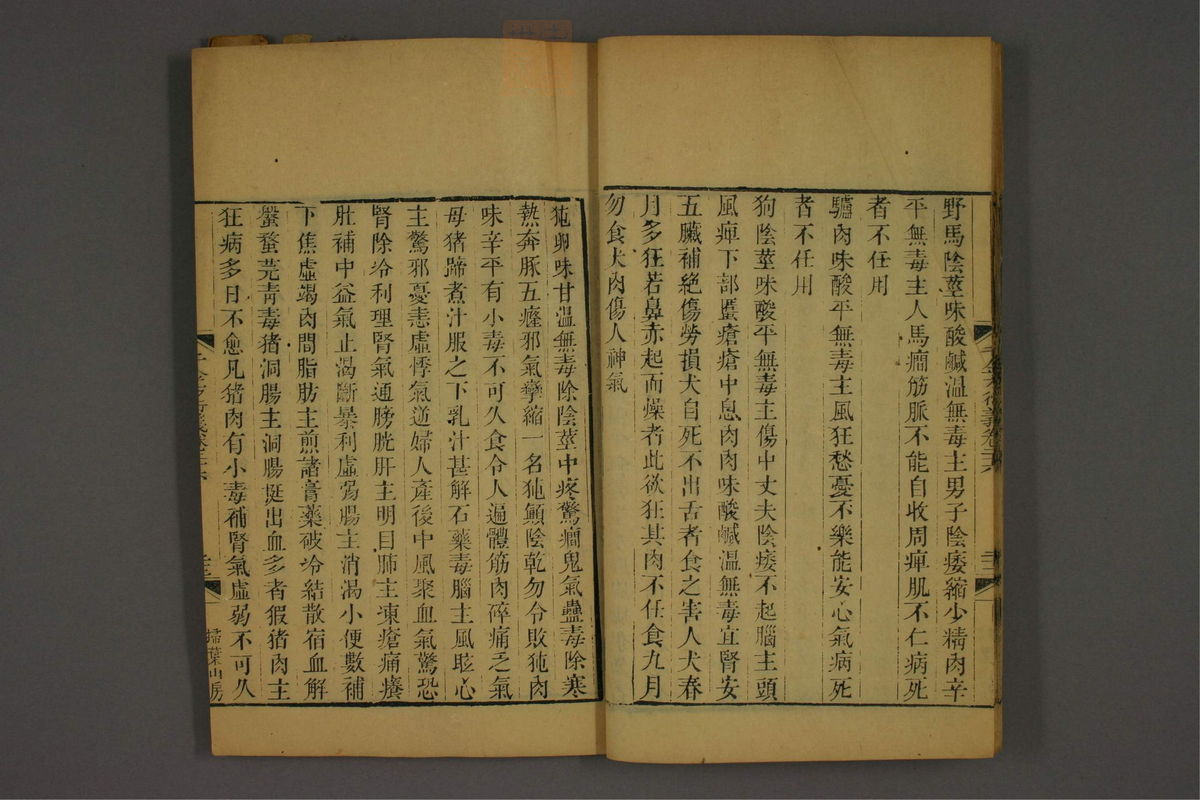 野馬陰莖味酸鹹溫無毒主男子陰痿縮少精肉辛
平無毒主人馬癇筋脈不能自收周痺肌不仁病死
者不任用
驢肉味酸平無毒主風狂愁憂不樂能安心氣病死
者不任用
狗陰莖味酸平無毒主傷中丈夫陰痿不起腦主頭
風痺下部䘌瘡瘡中息肉肉味酸鹹溫無毒宜腎安
五臟補絕傷勞損犬自死不出舌者食之害人犬春
月多狂若鼻赤起而燥者此欲狂其肉不任食九月
勿食犬肉傷人神氣
㹠卵味甘溫無毒除陰莖中疼驚癇鬼氣蠱毒除寒
熱奔豚五癃邪氣攣縮一名㹠顛陰乾勿令敗㹠肉
味辛平有小毒不可久食令人遍體筋肉碎痛乏氣
母猪蹄煮汁服之下乳汁甚解石藥毒腦主風眩心
主驚邪憂恚虛悸氣逆婦人產後中風聚血氣驚恐
腎除冷利理腎氣通膀胱肝主明目肺主凍瘡痛癢
肚補中益氣止渴斷暴利虛弱腸主消渴小便數補
下焦虛竭肉間脂肪主煎諸膏藥破冷結散宿血解
蟹蝥芫青毒猪洞腸主洞腸挺出血多者猳猪肉主
狂病多日不愈凡猪肉有小毒補腎氣虛弱不可久
掃葉山房